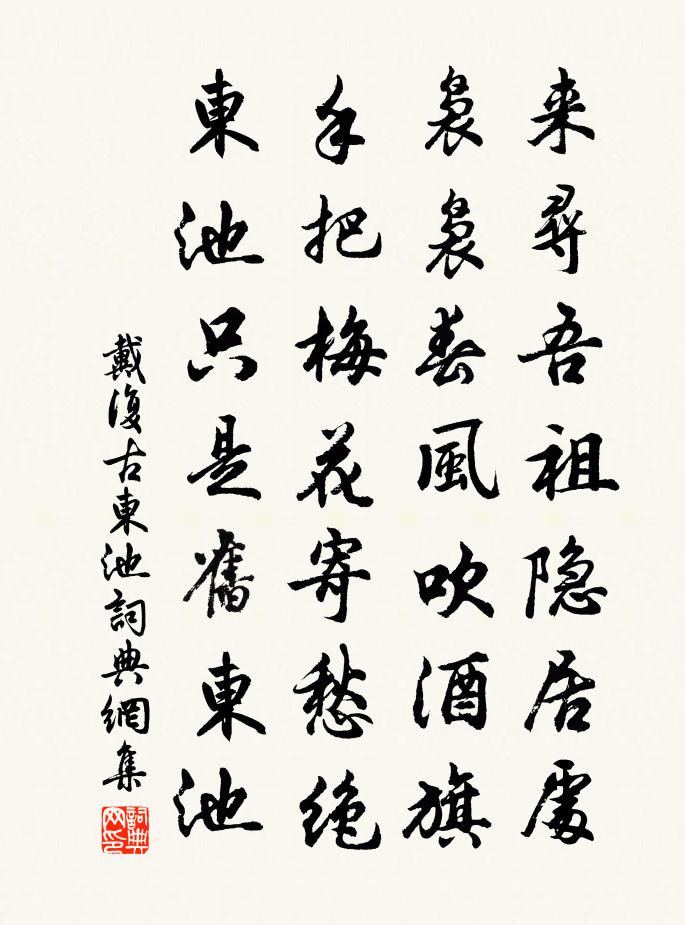 来尋吾祖隐居處
袅袅春風吹酒旗
手把梅花寄愁绝
東池只是舊東池
戴復古東池詞典網集
詞典网印